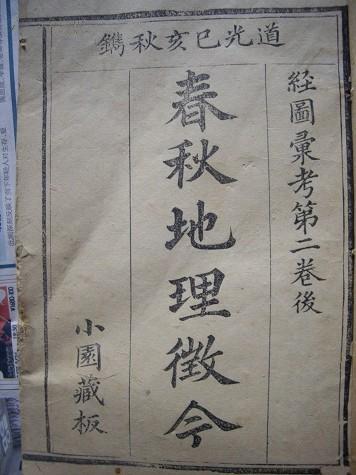 道光巳亥秋鐫
経圖彙考第二卷後
春秋地理徵今
小園藏板